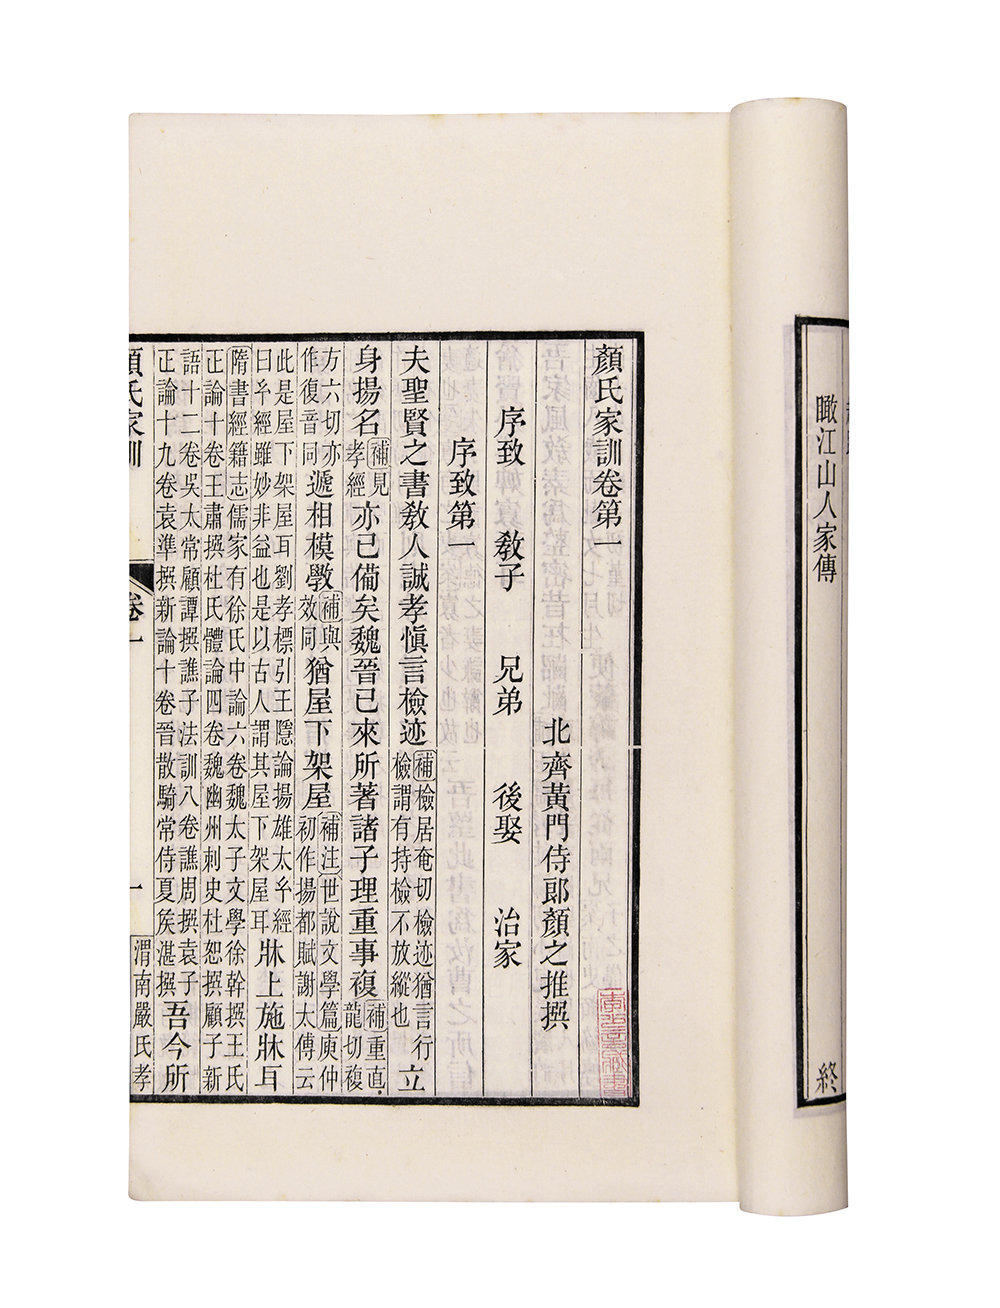 瞰江山人家傳
終
顏氏家訓卷第一
北齊黃門侍郎顏之推撰
序致 教子 兄弟 後娶 治家
序致第一
夫聖賢之書教人誠孝愼言檢迹補檢居奄切檢迹猶言行檢謂有持檢不放縱也立
身揚名補見孝經亦已備矣魏晉已來所著諸子理重事複補重直龍切複
方六切亦作復音同遞相模斆補與效同猶屋下架屋補注世說文學篇庾仲初作揚都賦謝太傅云
此是屋下架屋耳劉孝標引王隱論揚雄太玄經曰玄經雖妙非益也是以古人謂其屋下架屋耳牀上施牀耳
隋書經籍志儒家有徐氏中論六卷魏太子文學徐幹撰王氏正論十卷王肅撰杜氏體論四卷魏幽州刺史杜恕撰顧子新
語十二卷吳太常顧譚撰譙子法訓八卷譙周撰袁子正論十九卷袁準撰新論十卷晉散騎常侍夏矦湛撰吾今所
顏氏家訓 卷一 一 渭南嚴氏孝